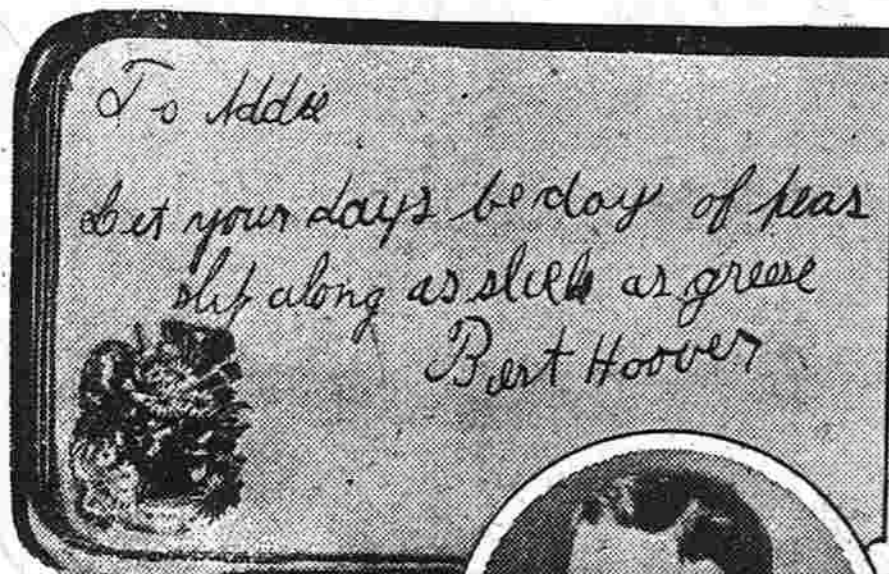 To Addie
Let your days be day of peas
slip along as slick as greese
Bert Hoover